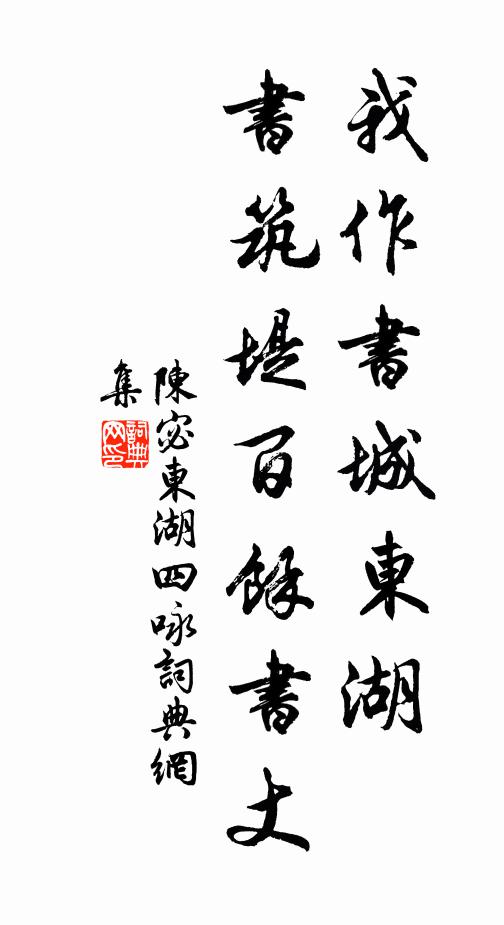 我作書城東湖
書筑堤百餘書丈
陳宓東湖四咏詞典網
集
詞典網印